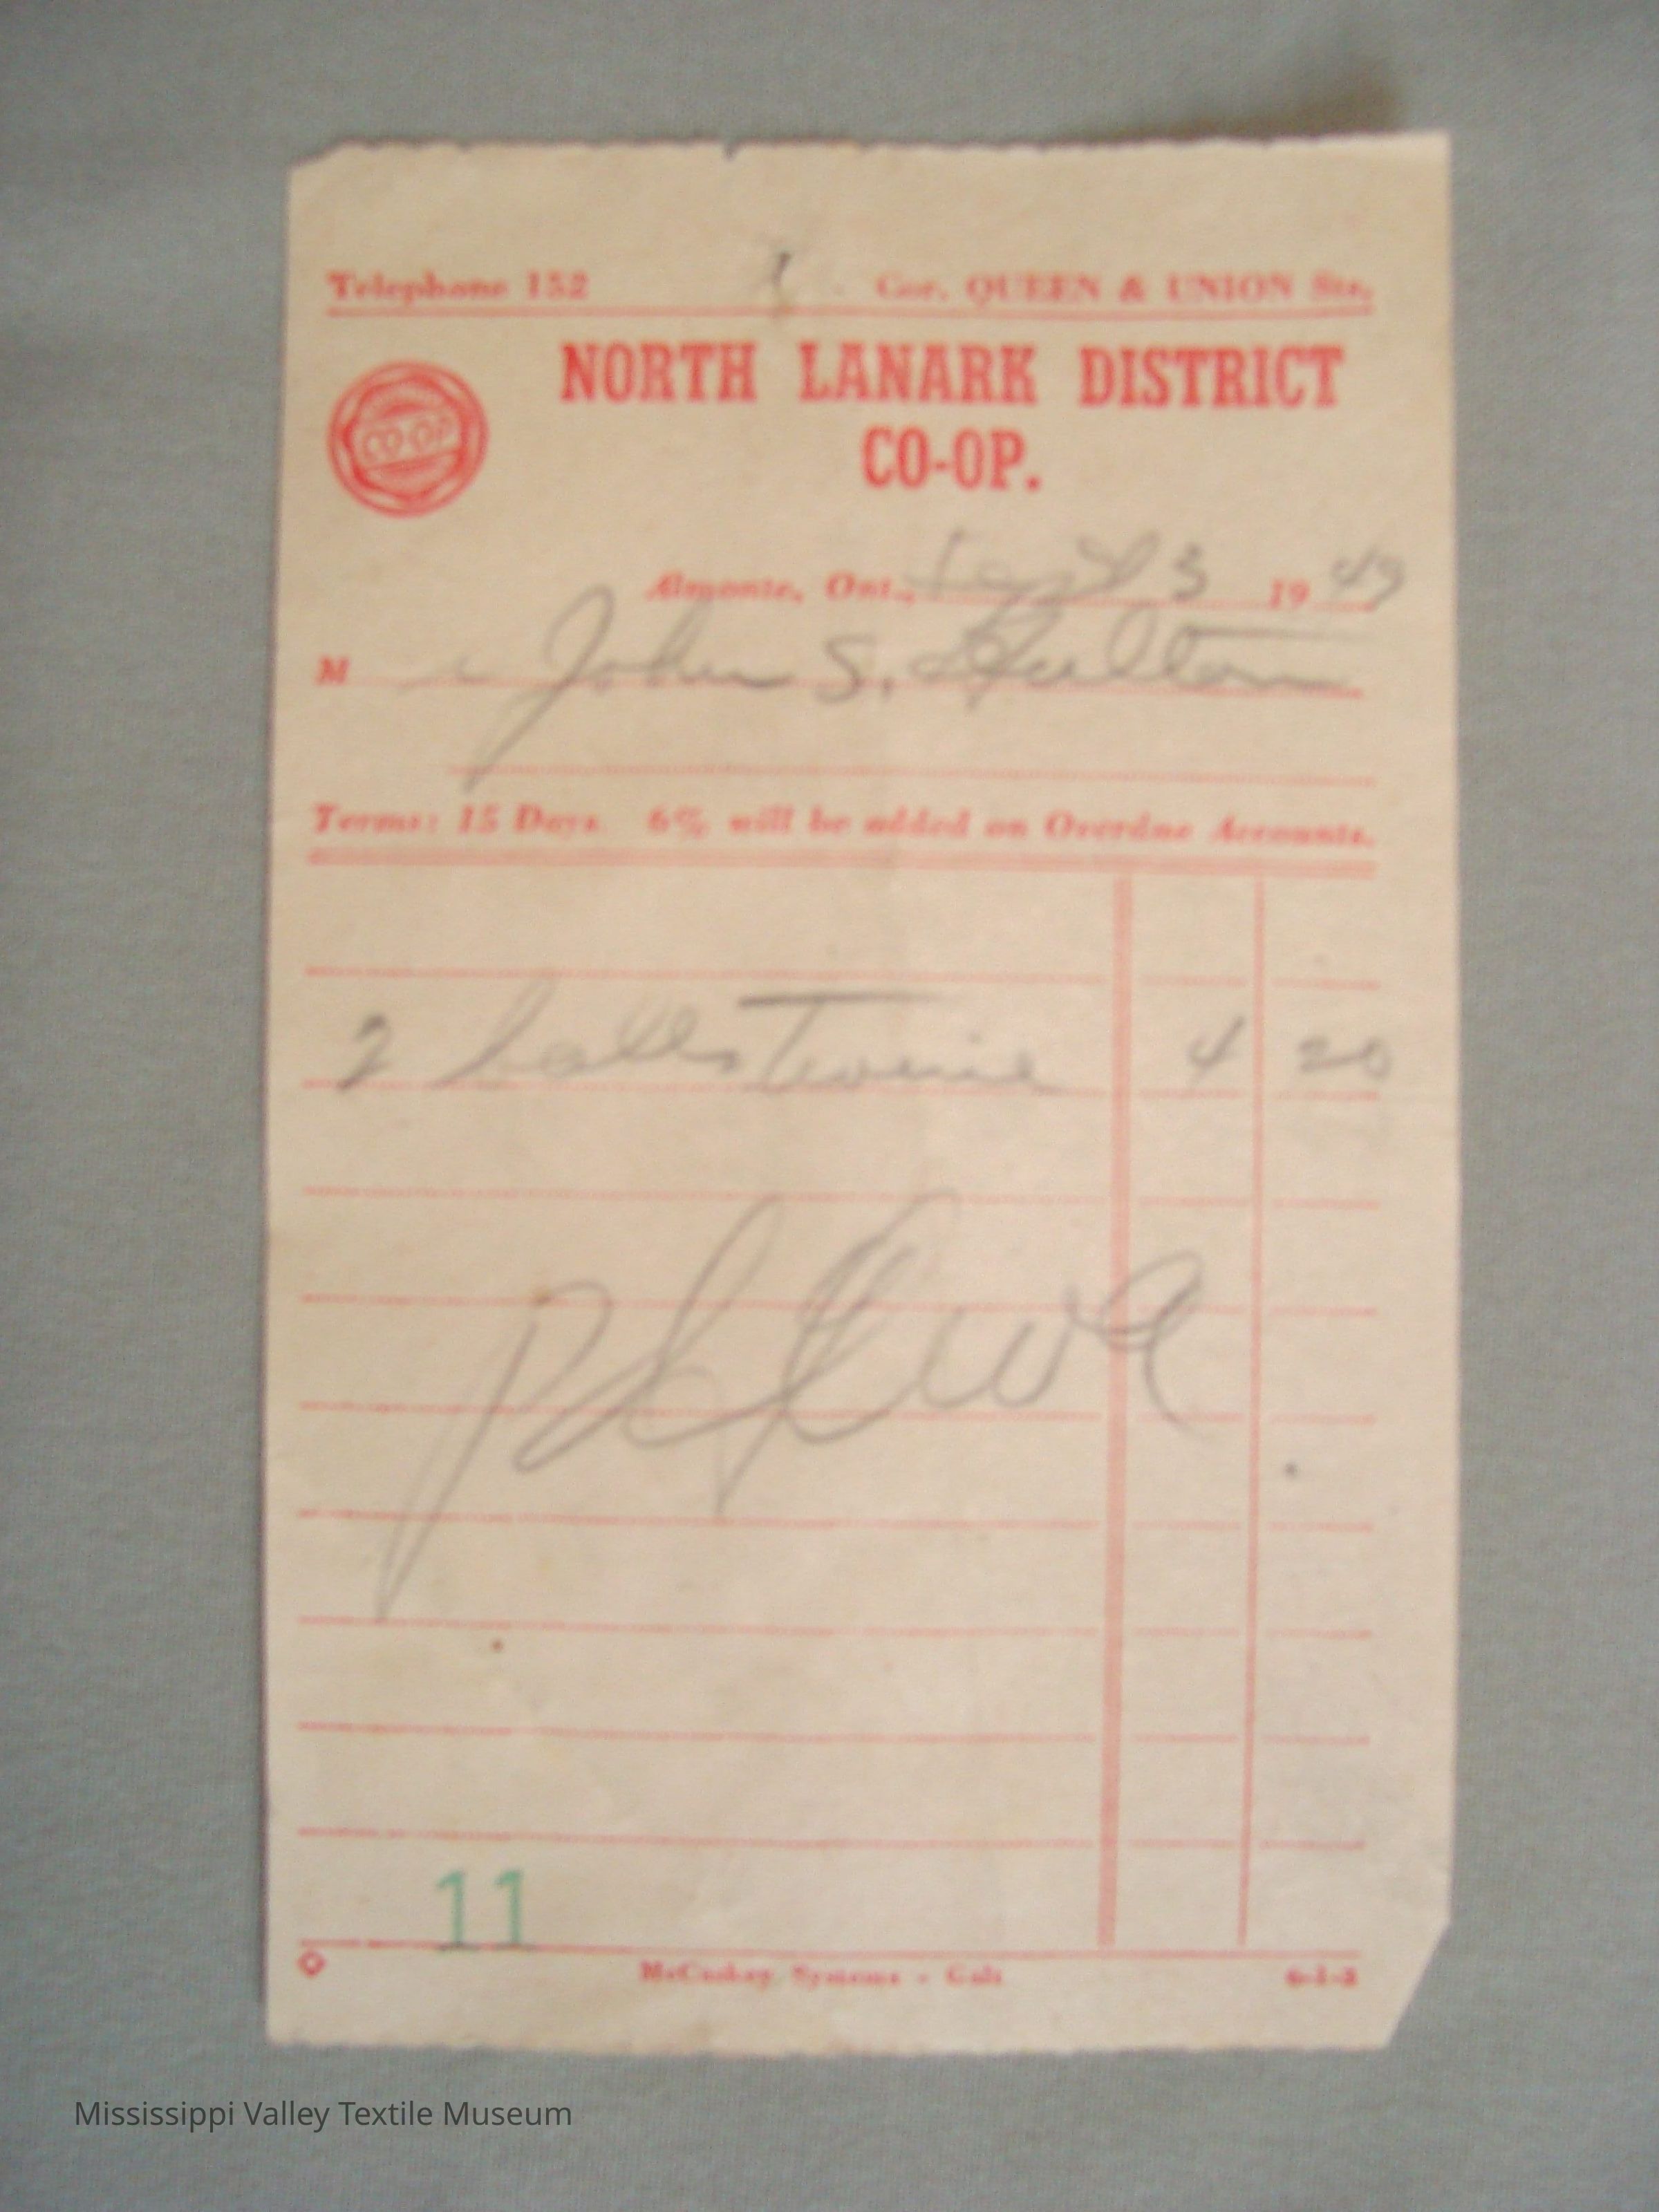 Telephone 152 Cor. QUEEN & UNION Sts.
CO-OP
NORTH LANARK DISTRICT
CO-OP.
Almonte, Ont., Sept 3 1949
Mr John S. Fulton
Terms: 15 Days. 6% will be added on Overdue Accounts.
2 balls Twine 4 20
11
McCaskey Systems - Galt 6-1-3
Mississippi Valley Textile Museum